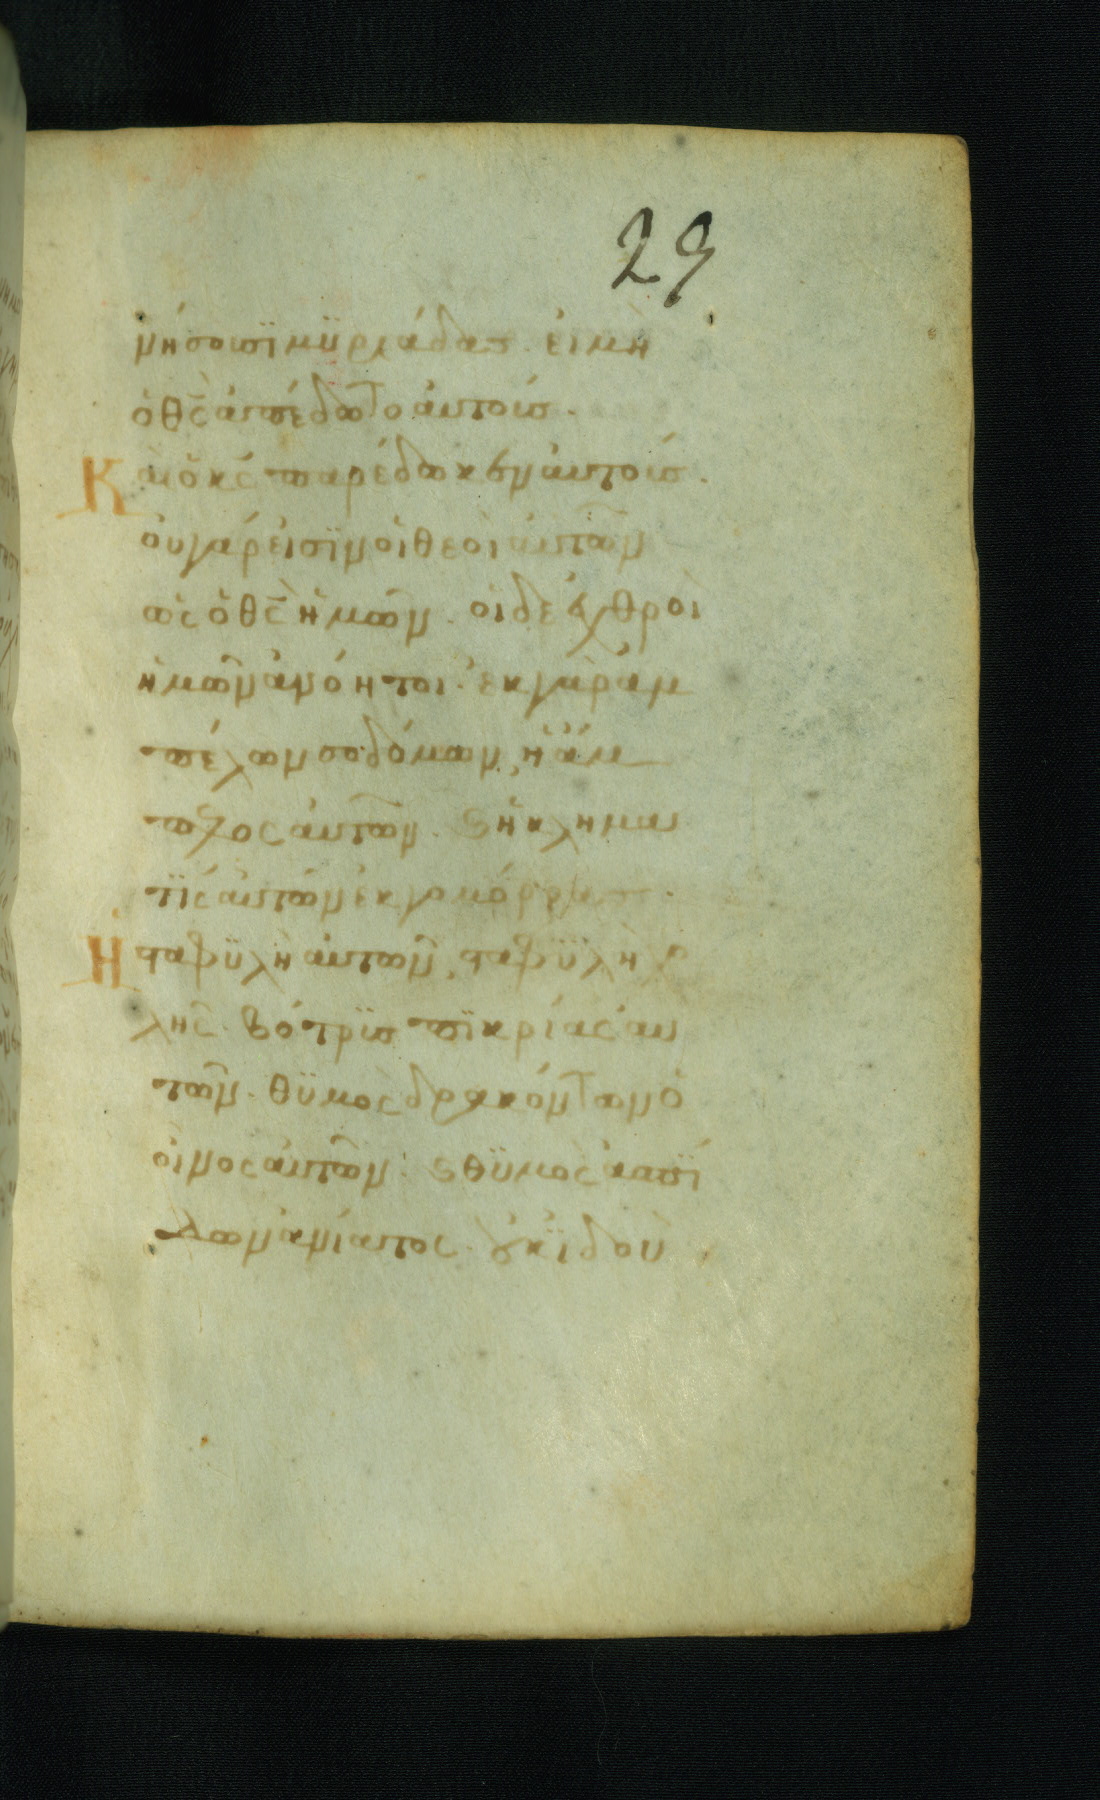 29
νήσουσϊ μϋριάδας· εἰ μὴ
ὁ θς ἀπέδοτο αὐτούς·
Καὶ ὁ κς παρέδωκεν αὐτούς·
οὐ γάρ εἰσϊν οἱ θεοὶ αὐτῶν
ὡς ὁ θς ἡμῶν· οἱ δὲ ἐχθροὶ
ἡμῶν ἀνόητοι· ἐκ γὰρ ἀμ
πέλων σοδόμων, ἡ ἄμ
πελος αὐτῶν· καὶ ἡ κλημα
τὶς αὐτῶν ἐκ γομόρρας·
Ἡ σταφϋλὴ αὐτῶν, σταφϋλὴ χο
λῆς· βότρϋς πϊκρίας αὐ
τῶν· θϋμὸς δρακόντων ὁ
οἶνος αὐτῶν· καὶ θϋμὸς ἀσπί
δων ἀνίατος· οὐκ ϊδοὺ